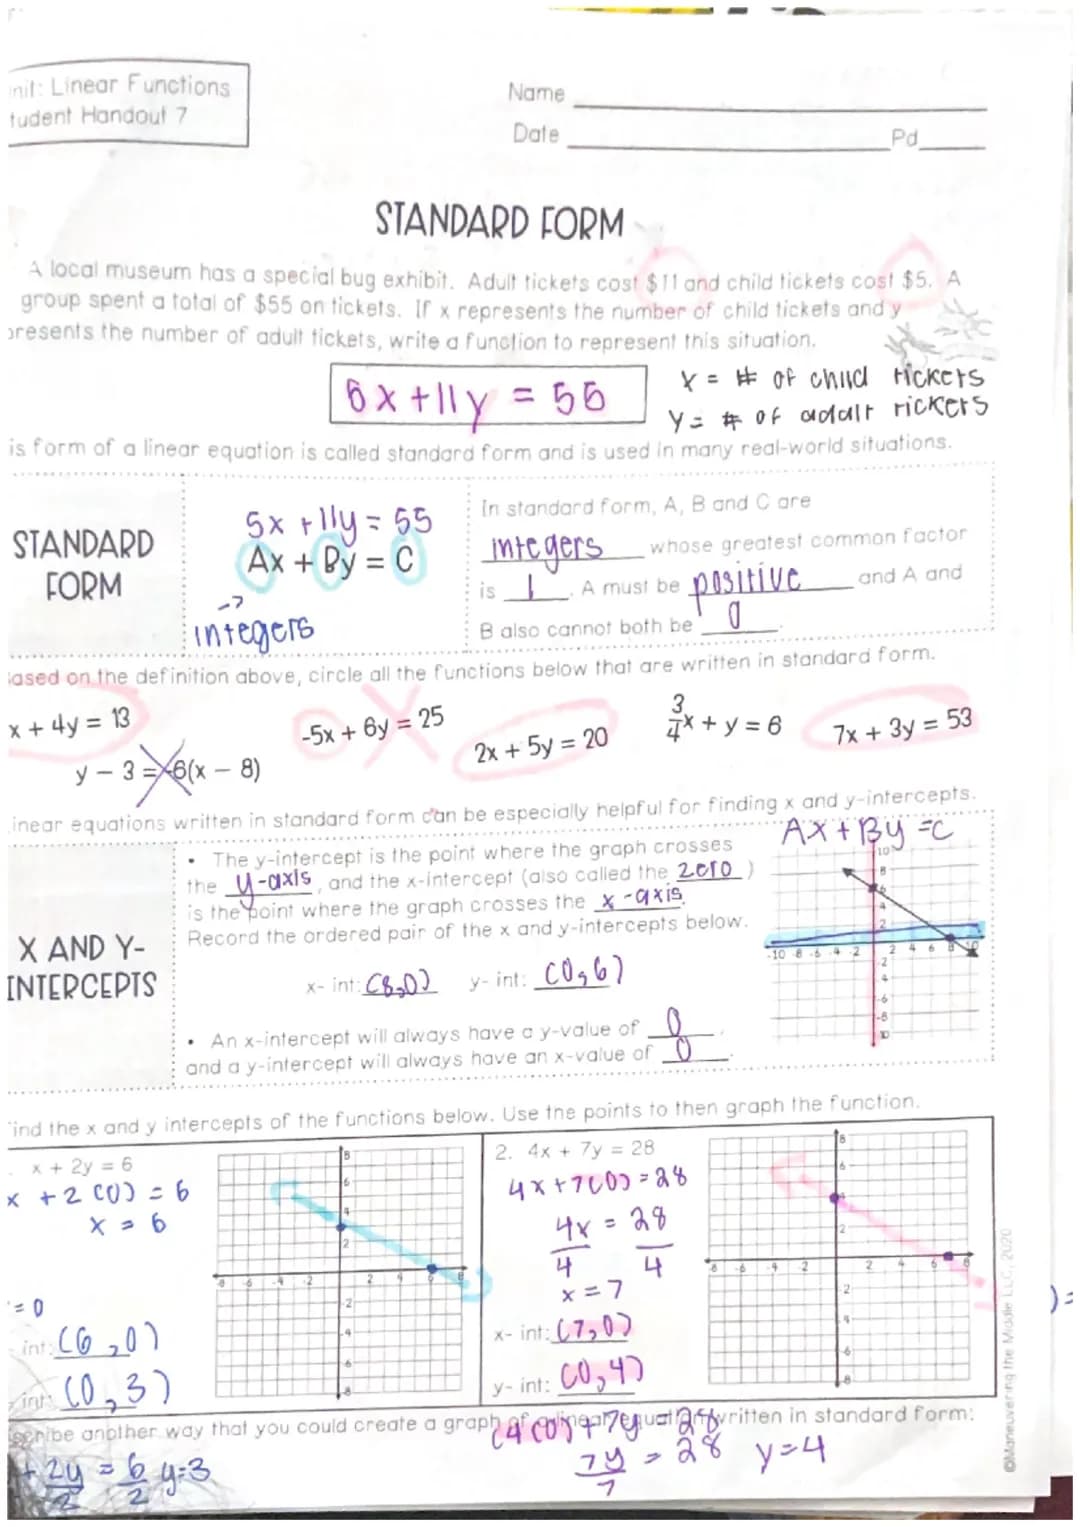 nit: Linear Functions
tudent Handout 7
Name
Date
Pd
STANDARD FORM
A local museum has a special bug exhibit. Adult tickets cost $11 and child tickets cost $5. A
group spent a total of $55 on tickets. If x represents the number of child tickets and y
presents the number of adult tickets, write a function to represent this situation.
5x + 11y = 55
x = # of child tickets
y = # of adult tickets
is form of a linear equation is called standard form and is used in many real-world situations.
STANDARD
FORM
5x + 11y = 55
Ax + By = C
→
integers
In standard form, A, B and C are
integers whose greatest common factor
is 1. A must be positive and A and
B also cannot both be 0.
ased on the definition above, circle all the functions below that are written in standard form.
x + 4y = 13
-5x + 6y = 25
2x + 5y = 20
3/4x + y = 6
7x + 3y = 53
y - 3 = -6(x - 8)
inear equations written in standard form can be especially helpful for finding x and y-intercepts.
X AND Y-
INTERCEPTS
• The y-intercept is the point where the graph crosses
the y-axis, and the x-intercept (also called the zero)
is the point where the graph crosses the x-axis.
Record the ordered pair of the x and y-intercepts below.
x- int: (8,0) y- int: (0,6)
• An x-intercept will always have a y-value of 0
and a y-intercept will always have an x-value of 0.
Ax + By = C
10
8
6
4
2
-10 -8 -6 -4 -2 2 4 6 8 10
-2
-4
-6
-8
10
ind the x and y intercepts of the functions below. Use the points to then graph the function.
x + 2y = 6
x + 2(0) = 6
x = 6
= 0
int: (6,0)
int: (0,3)
8
6
4
2
-8 -6 -4 -2 2 4 6 8
-2
-4
-6
-8
2. 4x + 7y = 28
4x + 7(0) = 28
4x = 28
4 4
x = 7
x- int: (7,0)
y- int: (0,4)
8
6
4
2
-8 -6 -4 -2 2 4 6 8
-2
-4
-6
-8
scribe another way that you could create a graph of a linear equation written in standard form:
(4(0) + 7y = 28
7y = 28 y=4
7
+ 2y = 6 y=3
2 2
©Maneuvering the Middle LLC, 2020
)=